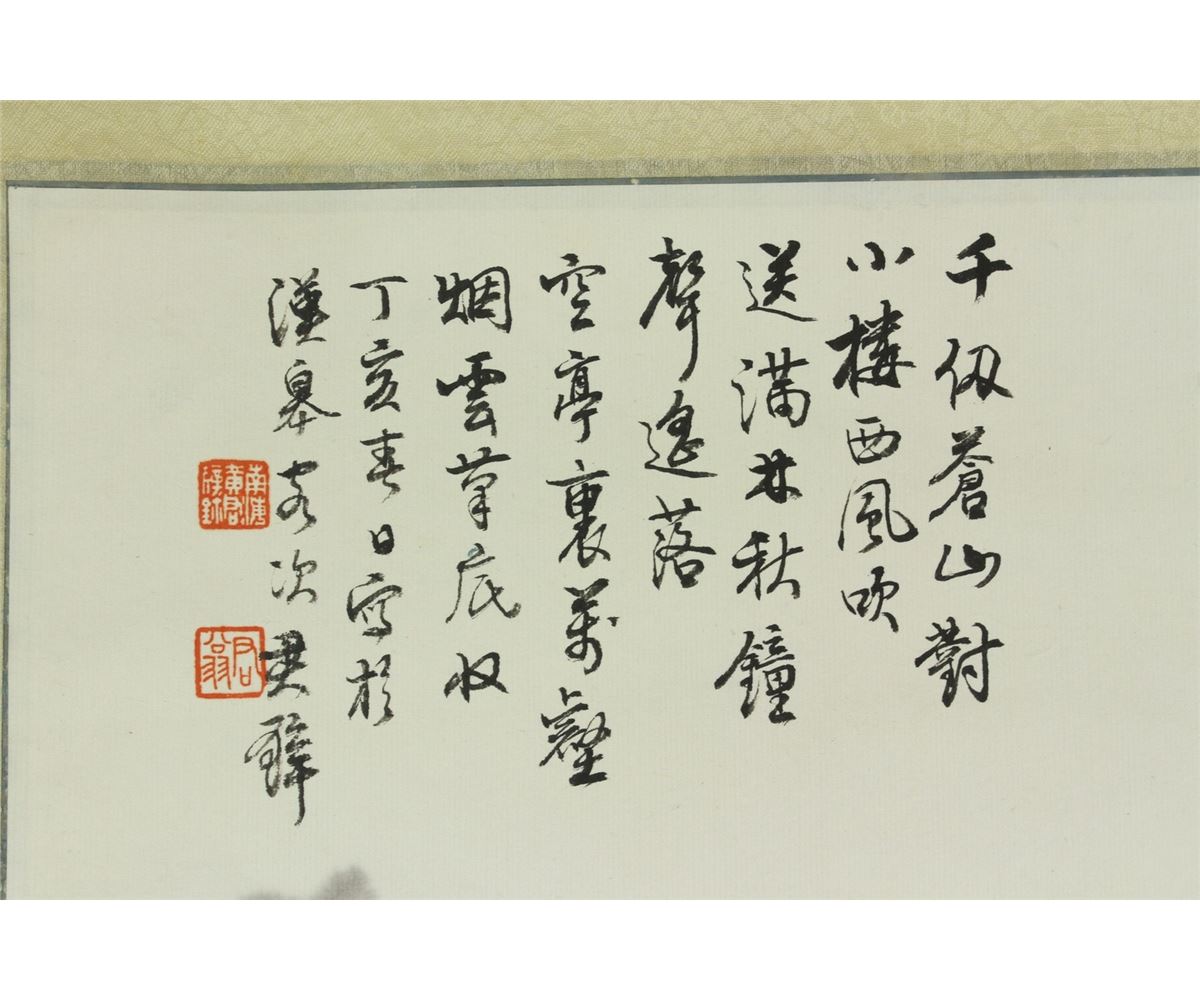 千仭蒼山對
小樓西風吹
送滿林秋鐘
聲遙落
空亭裏萬壑
烟雲筆底收
丁亥春日寫於
漢皋客次君璧
南海
黃君
璧鉨
君翁